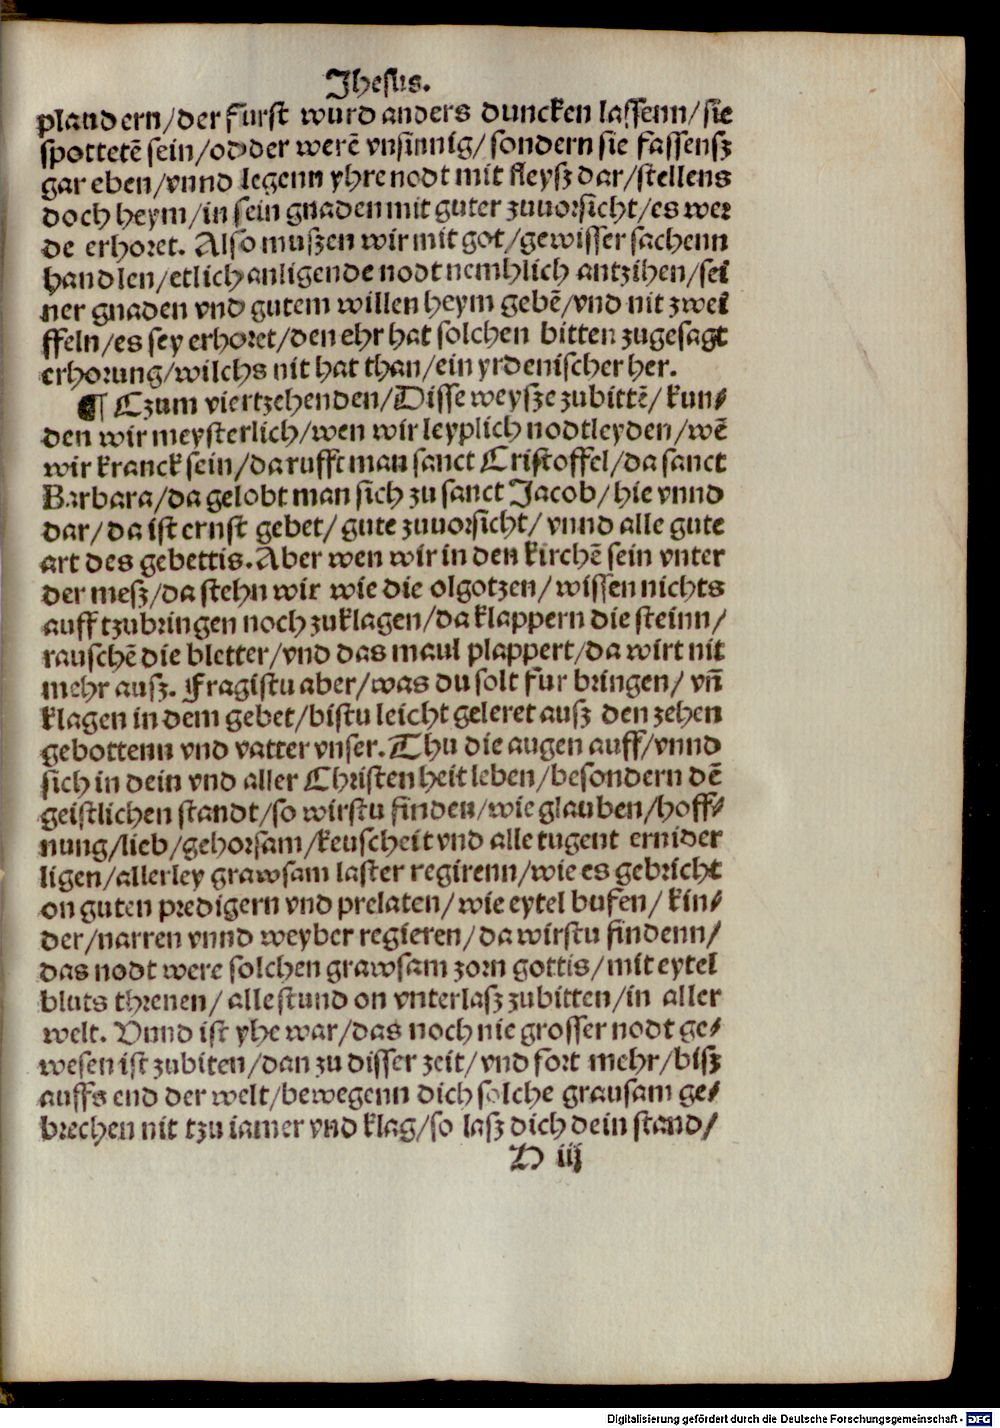 Jhesus.
plaudern/der furst wurd anders duncken lassenn/sie
spottetẽ sein/odder werẽ vnsinnig/sondern sie fassensz
gar eben/vnnd legenn yhre nodt mit fleysz dar/stellens
doch heym/in sein gnaden mit guter zuuorsicht/es wer
de erhoret. Also muszen wir mit got/gewisser sachenn
handlen/etlich anligende nodt nemhlich antzihen/sei
ner gnaden vnd gutem willen heym gebẽ/vnd nit zwei
ffeln/es sey erhoret/den ehr hat solchen bitten zugesagt
erhorung/wilchs nit hat than/ein yrdenischer her.
¶ Czum viertzehenden/Disse weysze zubittẽ/kun⸗
den wir meysterlich/wen wir leyplich nodt leyden/wẽ
wir kranck sein/da rufft man sanct Cristoffel/da sanct
Barbara/da gelobt man sich zu sanct Jacob/hie vnnd
dar/da ist ernst gebet/gute zuuorsicht/vnnd alle gute
art des gebettis. Aber wen wir in den kirchẽ sein vnter
der mesz/da stehn wir wie die olgotzen/wissen nichts
auff tzubringen noch zuklagen/da klappern die steinn/
rauschẽ die bletter/vnd das maul plappert/da wirt nit
mehr ausz. Fragistu aber/was du solt fur bringen/vñ
klagen in dem gebet/bistu leicht geleret ausz den zehen
gebottenn vnd vatter vnser. Thu die augen auff/vnnd
sich in dein vnd aller Christenheit leben/besondern dẽ
geistlichen standt/so wirstu finden/wie glauben/hoff⸗
nung/lieb/gehorsam/keuscheit vnd alle tugent ernider
ligen/allerley grawsam laster regirenn/wie es gebricht
on guten predigern vnd prelaten/wie eytel bufen/kin⸗
der/narren vnnd weyber regieren/da wirstu findenn/
das nodt were solchen grawsam zorn gottis/mit eytel
bluts threnen/alle stund on vnterlasz zubitten/in aller
welt. Vnnd ist yhe war/das noch nie grosser nodt ge⸗
wesen ist zubiten/dan zu disser zeit/vnd fort mehr/bisz
auffs end der welt/bewegenn dich solche grausam ge⸗
brechen nit tzu iamer vnd klag/so lasz dich dein stand/
D iij
Digitalisierung gefördert durch die Deutsche Forschungsgemeinschaft - DFG